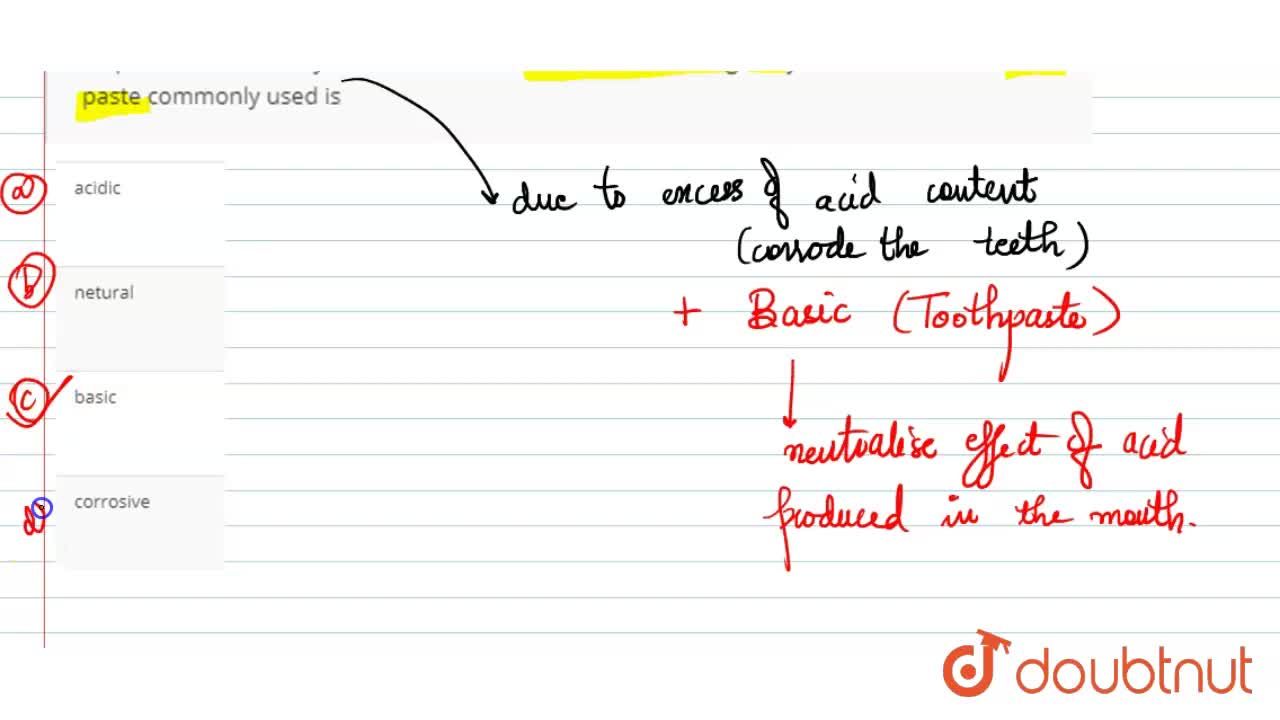 paste commonly used is
a acidic
b netural
c basic
d corrosive
due to excess of acid content
(corrode the teeth)
+ Basic (Toothpaste)
neutralise effect of acid
produced in the mouth.
doubtnut